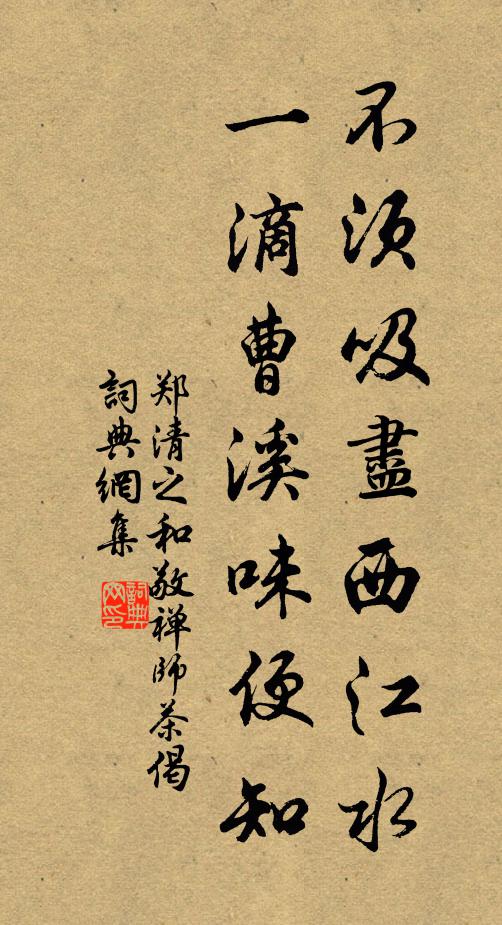 不須吸盡西江水
一滴曹溪味便知
郑清之和敬禅師茶偈
詞典網集
詞典网印